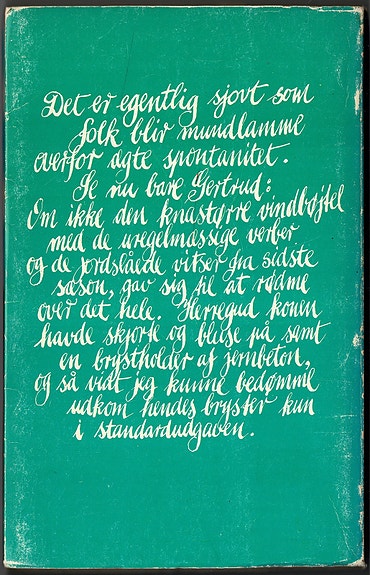 Det er egentlig sjovt som
folk blir mundlamme
overfor ægte spontanitet.
Se nu bare Gertrud:
Om ikke den knastørre vindbøjtel
med de uregelmæssige verber
og de jordslåede vitser fra sidste
sæson, gav sig til at rødme
over det hele. Herregud konen
havde skjorte og bluse på samt
en brystholder af jernbeton,
og så vidt jeg kunne bedømme
udkom hendes bryster kun
i standardudgaven.